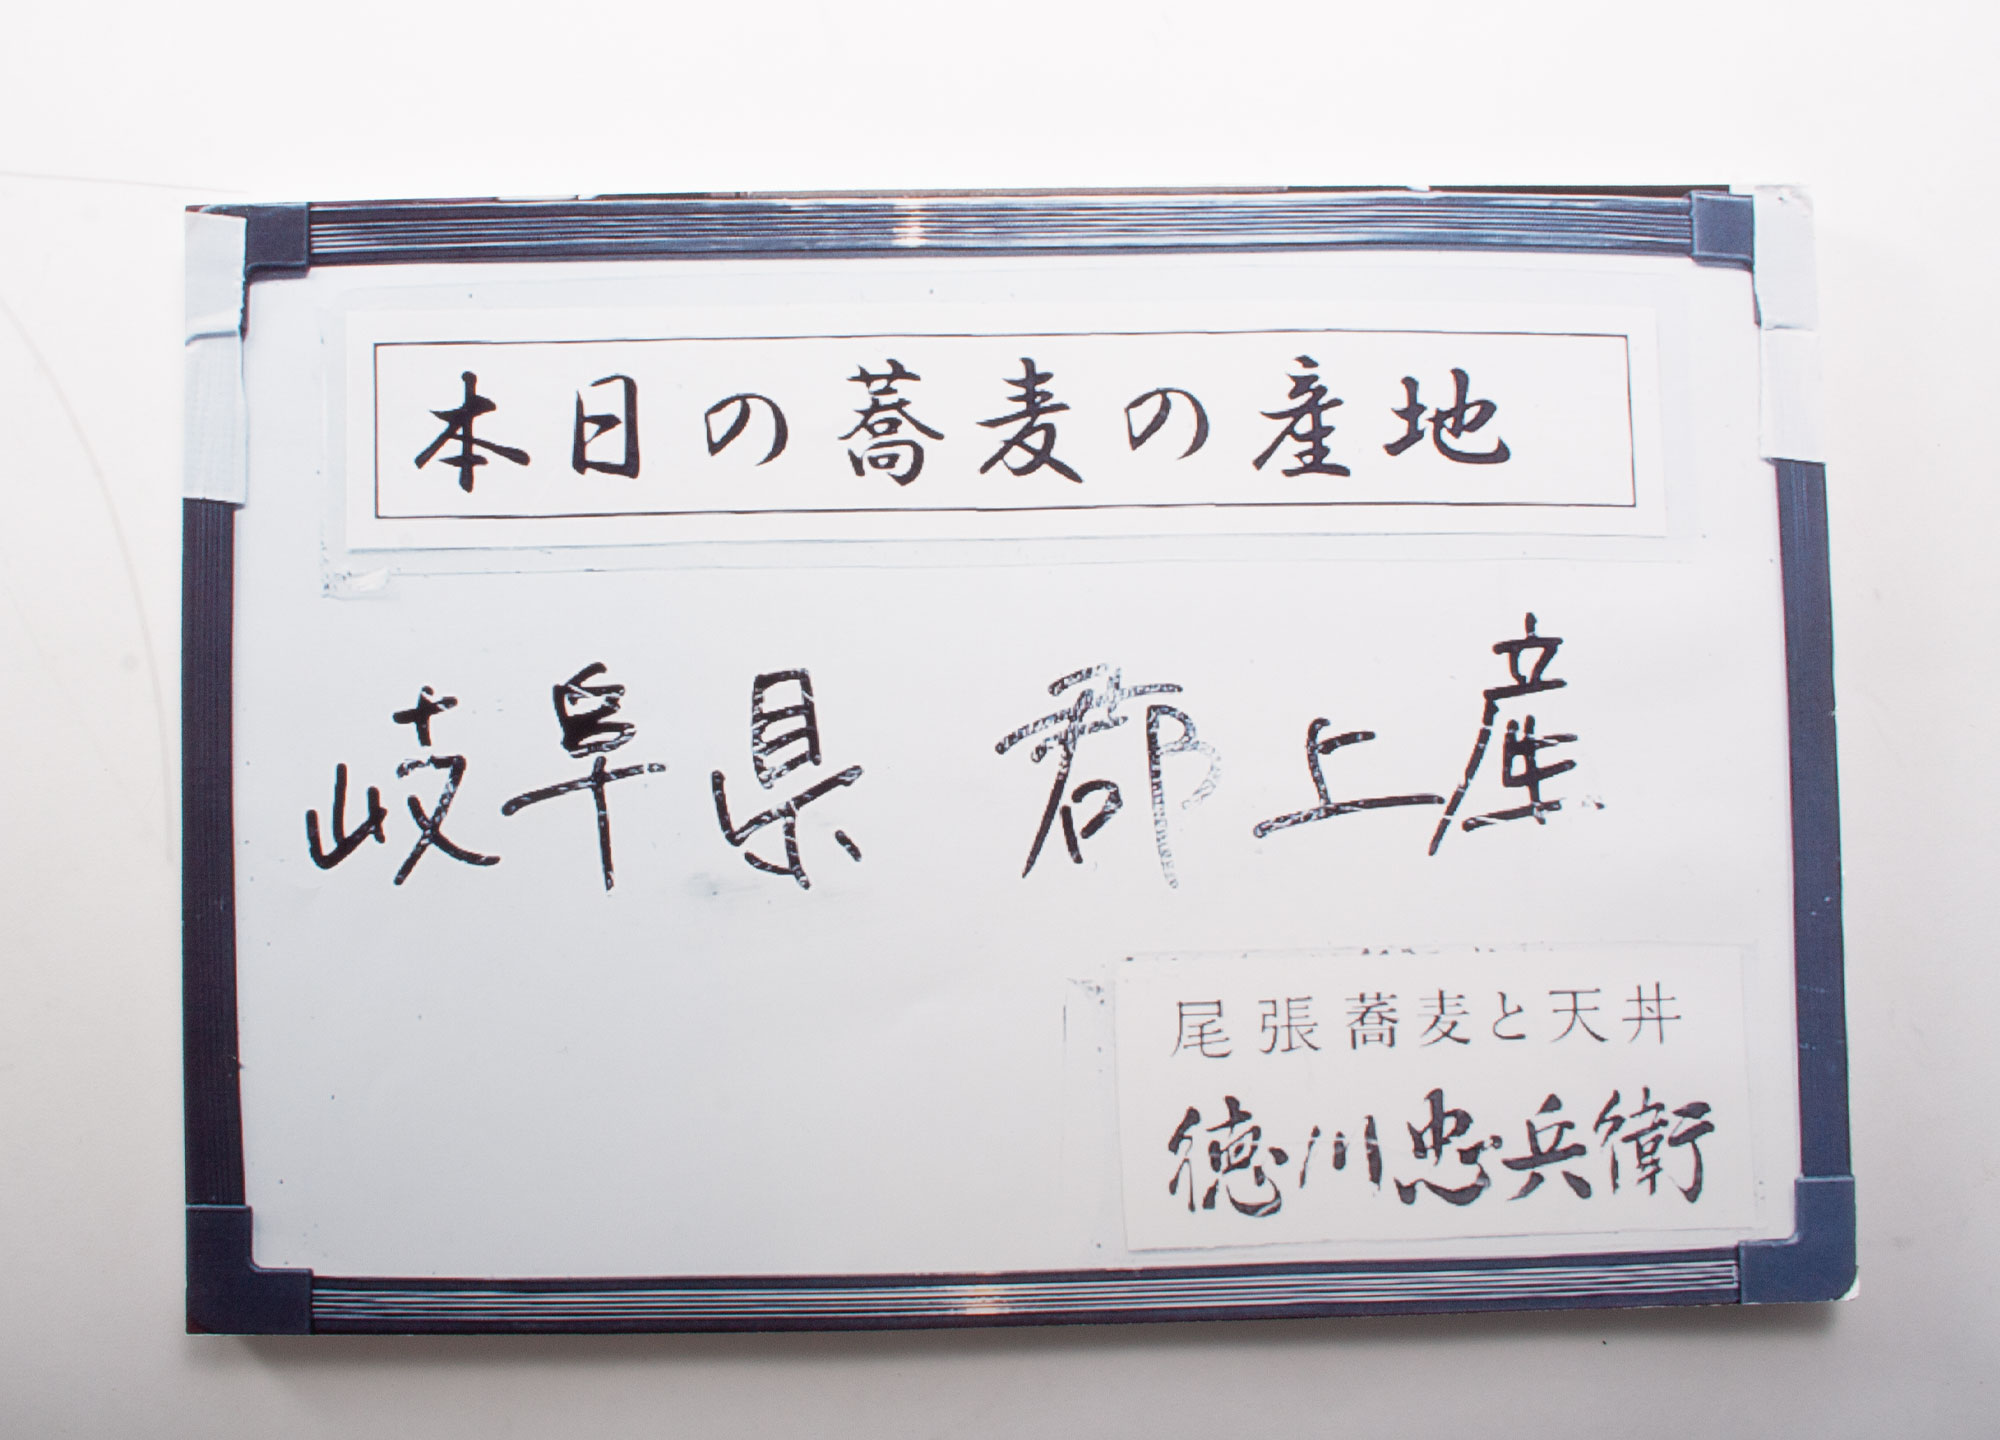 本日の蕎麦の産地
岐阜県 郡上産
尾張蕎麦と天丼
徳川忠兵衛